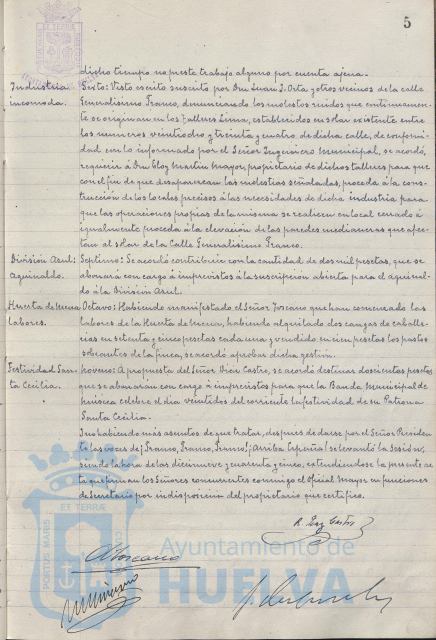 5
dicho tiempo no preste trabajo alguno por cuenta ajena.-
Industria incomoda.
Sexto: Visto escrito suscrito por Don Juan J. Orta y otros vecinos de la calle
Generalisimo Franco, denunciando los molestos ruidos que continuamen-
te se originan en los Talleres Lima, establecidos en solar existente entre
los numeros veintiocho y treinta y cuatro de dicha calle, de conformi-
dad con lo informado por el Señor Ingeniero Municipal, se acordó,
requerir á Don Eloy Martin Mayor, propietario de dichos talleres para que
con el fin de que desaparezcan las molestias señaladas, proceda á la cons-
trucción de los locales precisos á las necesidades de dicha industria para
que las operaciones propias de la misma se realicen en local cerrado é
igualmente proceda á la elevación de las paredes medianeras que afec-
tan al solar de la Calle Generalisimo Franco.
División Azul: Aguinaldo.
Septimo: Se acordó contribuir con la cantidad de dos mil pesetas, que se
abonará con cargo á imprevistos á la suscripción abierta para el aguinal-
do á la División Azul.
Huerta de Mena labores.
Octavo: Habiendo manifestado el Señor Toscano que han comenzado las
labores de la Huerta de Mena, habiendo alquilado dos cangas de caballe-
rias en setenta y cinco pesetas cada una y vendido en cien pesetas los pastos
sobrantes de la finca, se acordó aprobar dicha gestión.
Festividad San-
ta Cecilia.
Noveno: A propuesta del Señor Diaz Castro, se acordó destinar doscientas pesetas
que se abonarán con cargo á imprevistos para que la Banda Municipal de
musica celebre el dia veintidos del corriente la festividad de su Patrona
Santa Cecilia.
Y no habiendo más asuntos de que tratar, despues de darse por el Señor Presiden-
te las voces de ¡Franco, Franco, Franco! ¡Arriba España! se levantó la Sesión,
siendo la hora de las diecinueve y cuarenta y cinco, extendiendose la presente ac-
ta que firman los Señores concurrentes conmigo el Oficial Mayor en funciones
de Secretario por indisposición del propietario que certifico.
R. Diaz Castro
A. Toscano
PORTUS MARIS ET TERRAE CUSTODIA
Ayuntamiento de
HUELVA